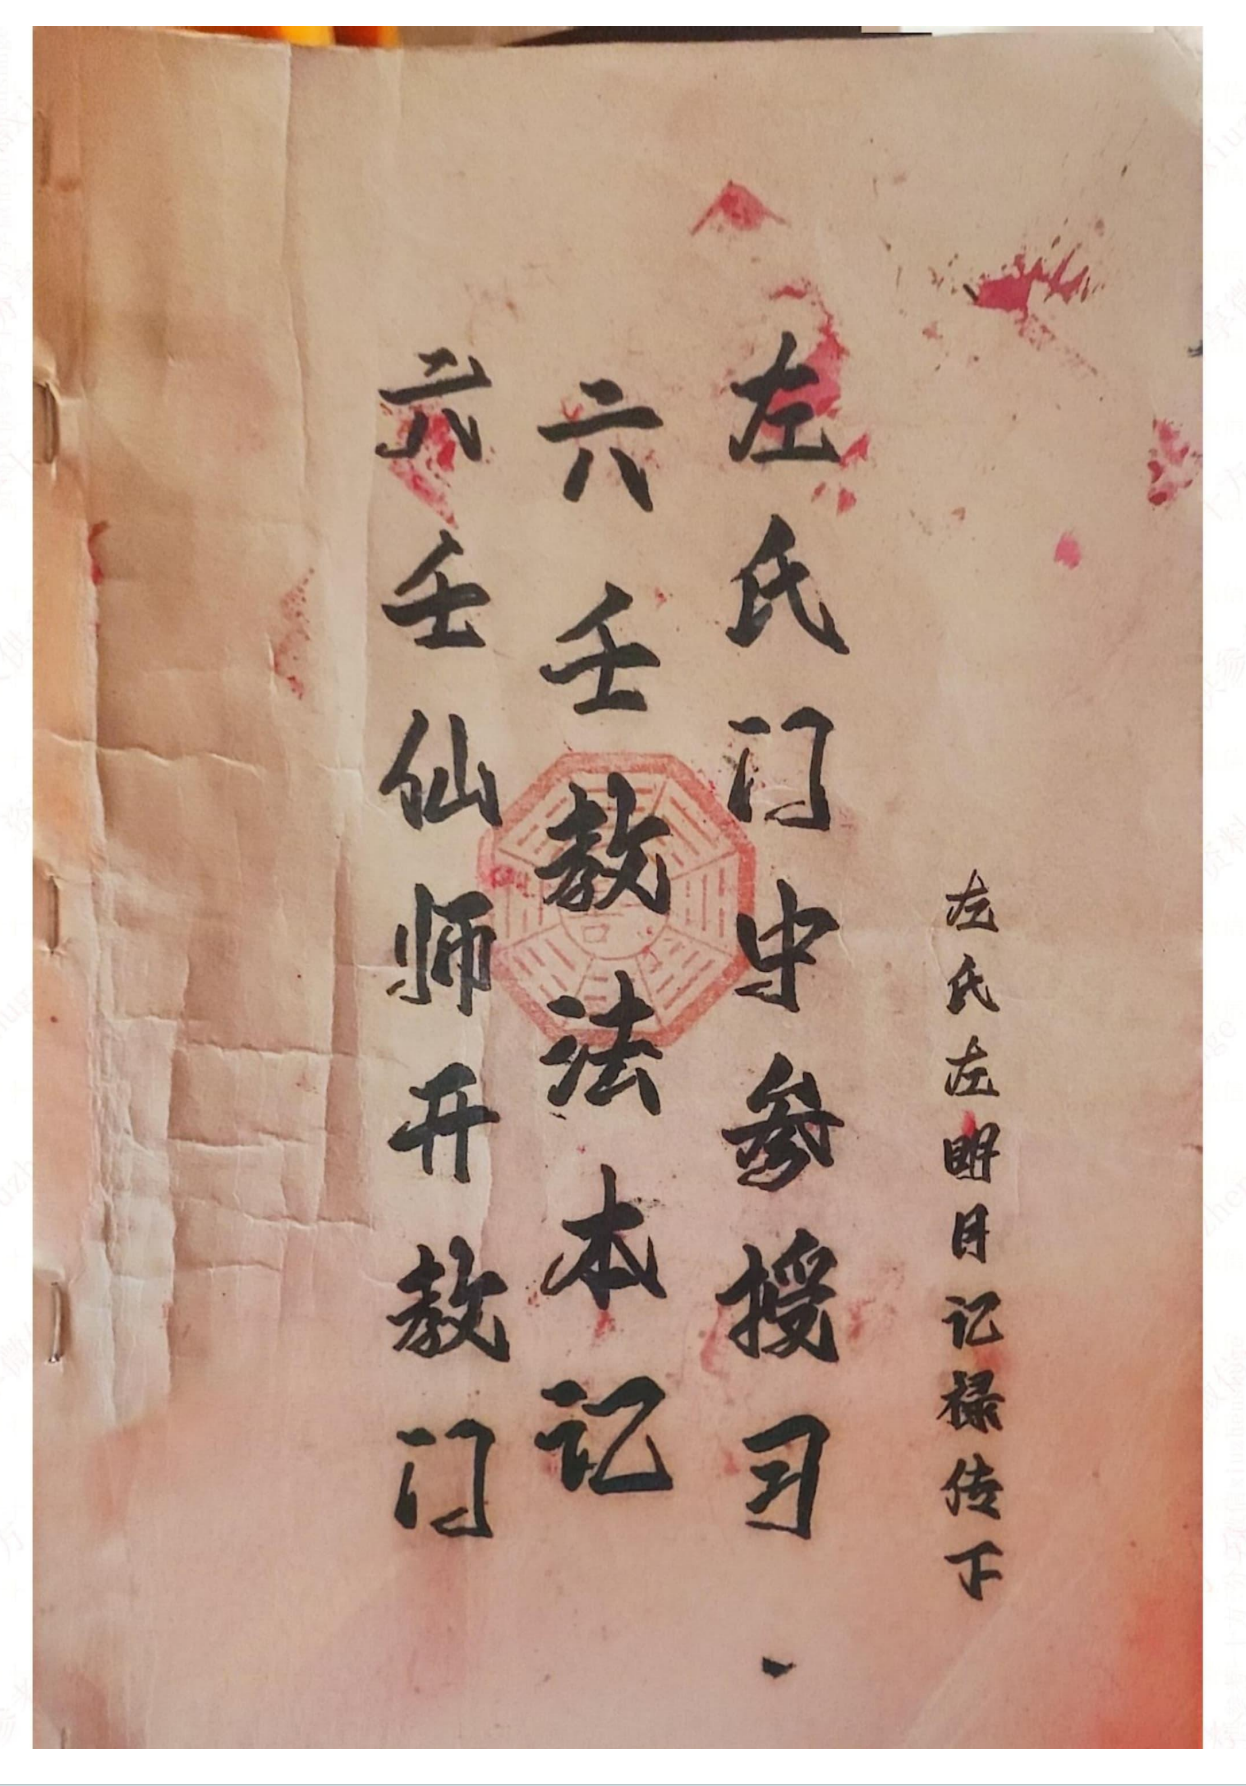 左氏左明月记禄传下
左氏门中参授习
六壬教法本记
六壬仙师开教门